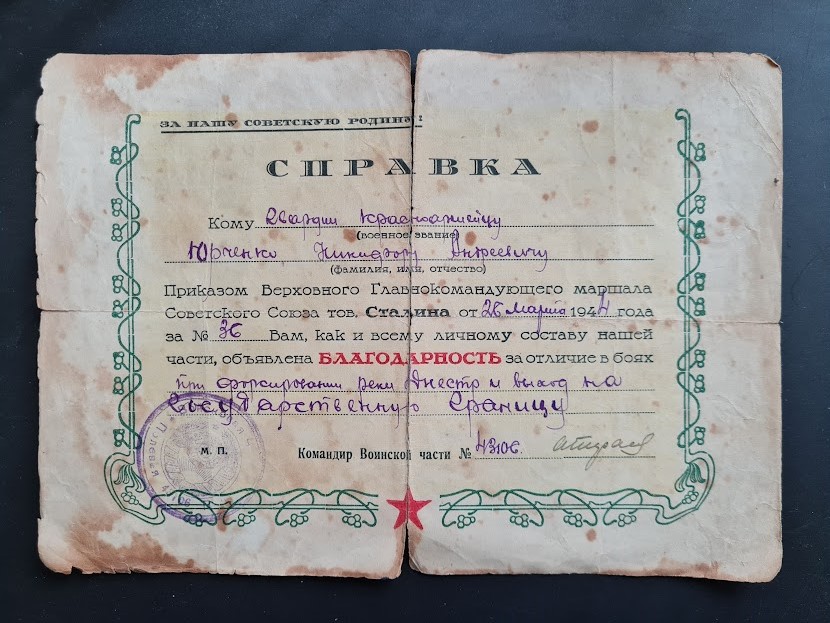 ЗА НАШУ СОВЕТСКУЮ РОДИНУ!
СПРАВКА
Кому Гвардии красноармейцу
(военное звание)
Юрченко Никифору Андреевичу
(фамилия, имя, отчество)
Приказом Верховного Главнокомандующего маршала
Советского Союза тов. Сталина от 26 марта 1944 года
за № 36 Вам, как и всему личному составу нашей
части, объявлена БЛАГОДАРНОСТЬ за отличие в боях
при форсировании реки Днестр и выход на
Государственную Границу
М. П.
Командир Воинской части № 43106.